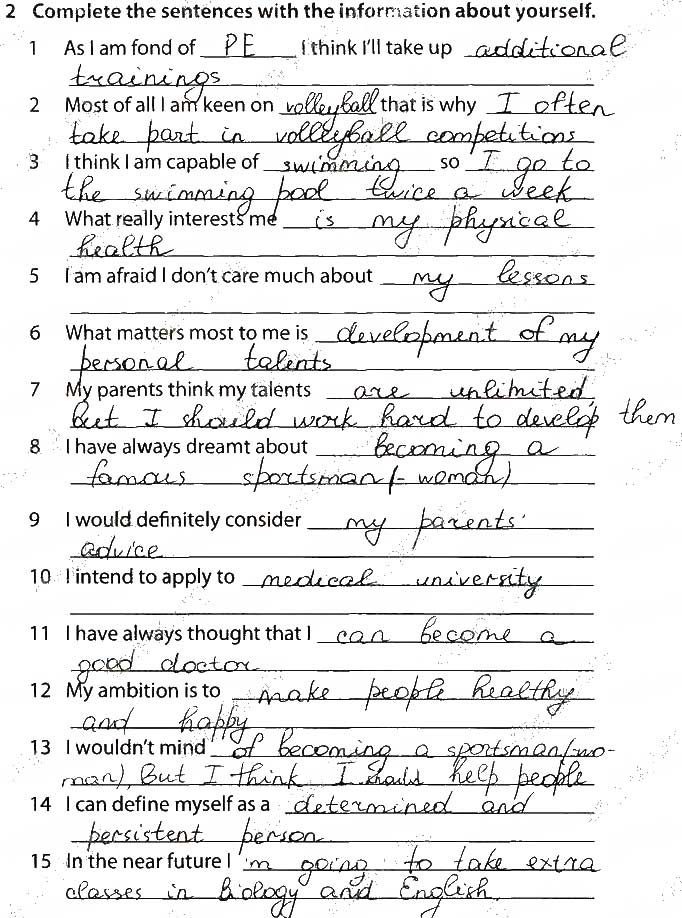 2 Complete the sentences with the information about yourself.
1 As I am fond of PE I think I'll take up additional
trainings
2 Most of all I am keen on volleyball that is why I often
take part in volleyball competitions
3 I think I am capable of swimming so I go to
the swimming pool twice a week
4 What really interests me is my physical
health
5 I am afraid I don't care much about my lessons
6 What matters most to me is development of my
personal talents
7 My parents think my talents are unlimited,
but I should work hard to develop them
8 I have always dreamt about becoming a
famous sportsman(-woman)
9 I would definitely consider my parents'
advice
10 I intend to apply to medical university
11 I have always thought that I can become a
good doctor
12 My ambition is to make people healthy
and happy
13 I wouldn't mind of becoming a sportsman(wo-
man), But I think I should help people
14 I can define myself as a determined and
persistent person
15 In the near future I 'm going to take extra
classes in Biology and English.